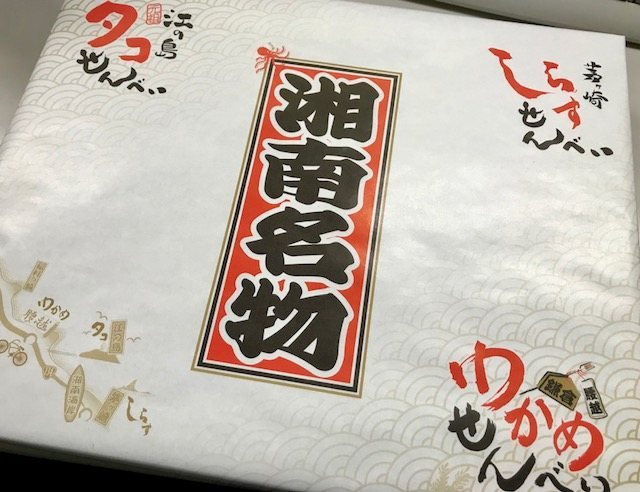 元祖
江の島
タコ
せんべい
湘南名物
茅ヶ崎
しらす
せんべい
わかめ
腰越
タコ
江の島
湘南海岸
しらす
鎌倉
腰越
わかめ
せんべい